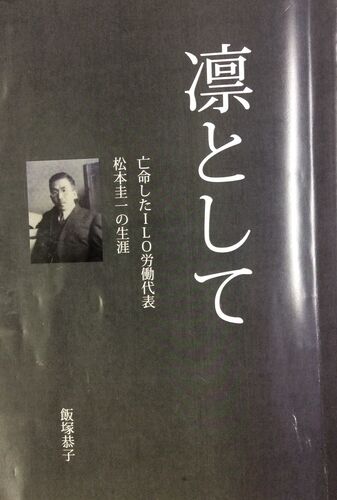 凛として
亡命したILO労働代表
松本圭一の生涯
飯塚恭子